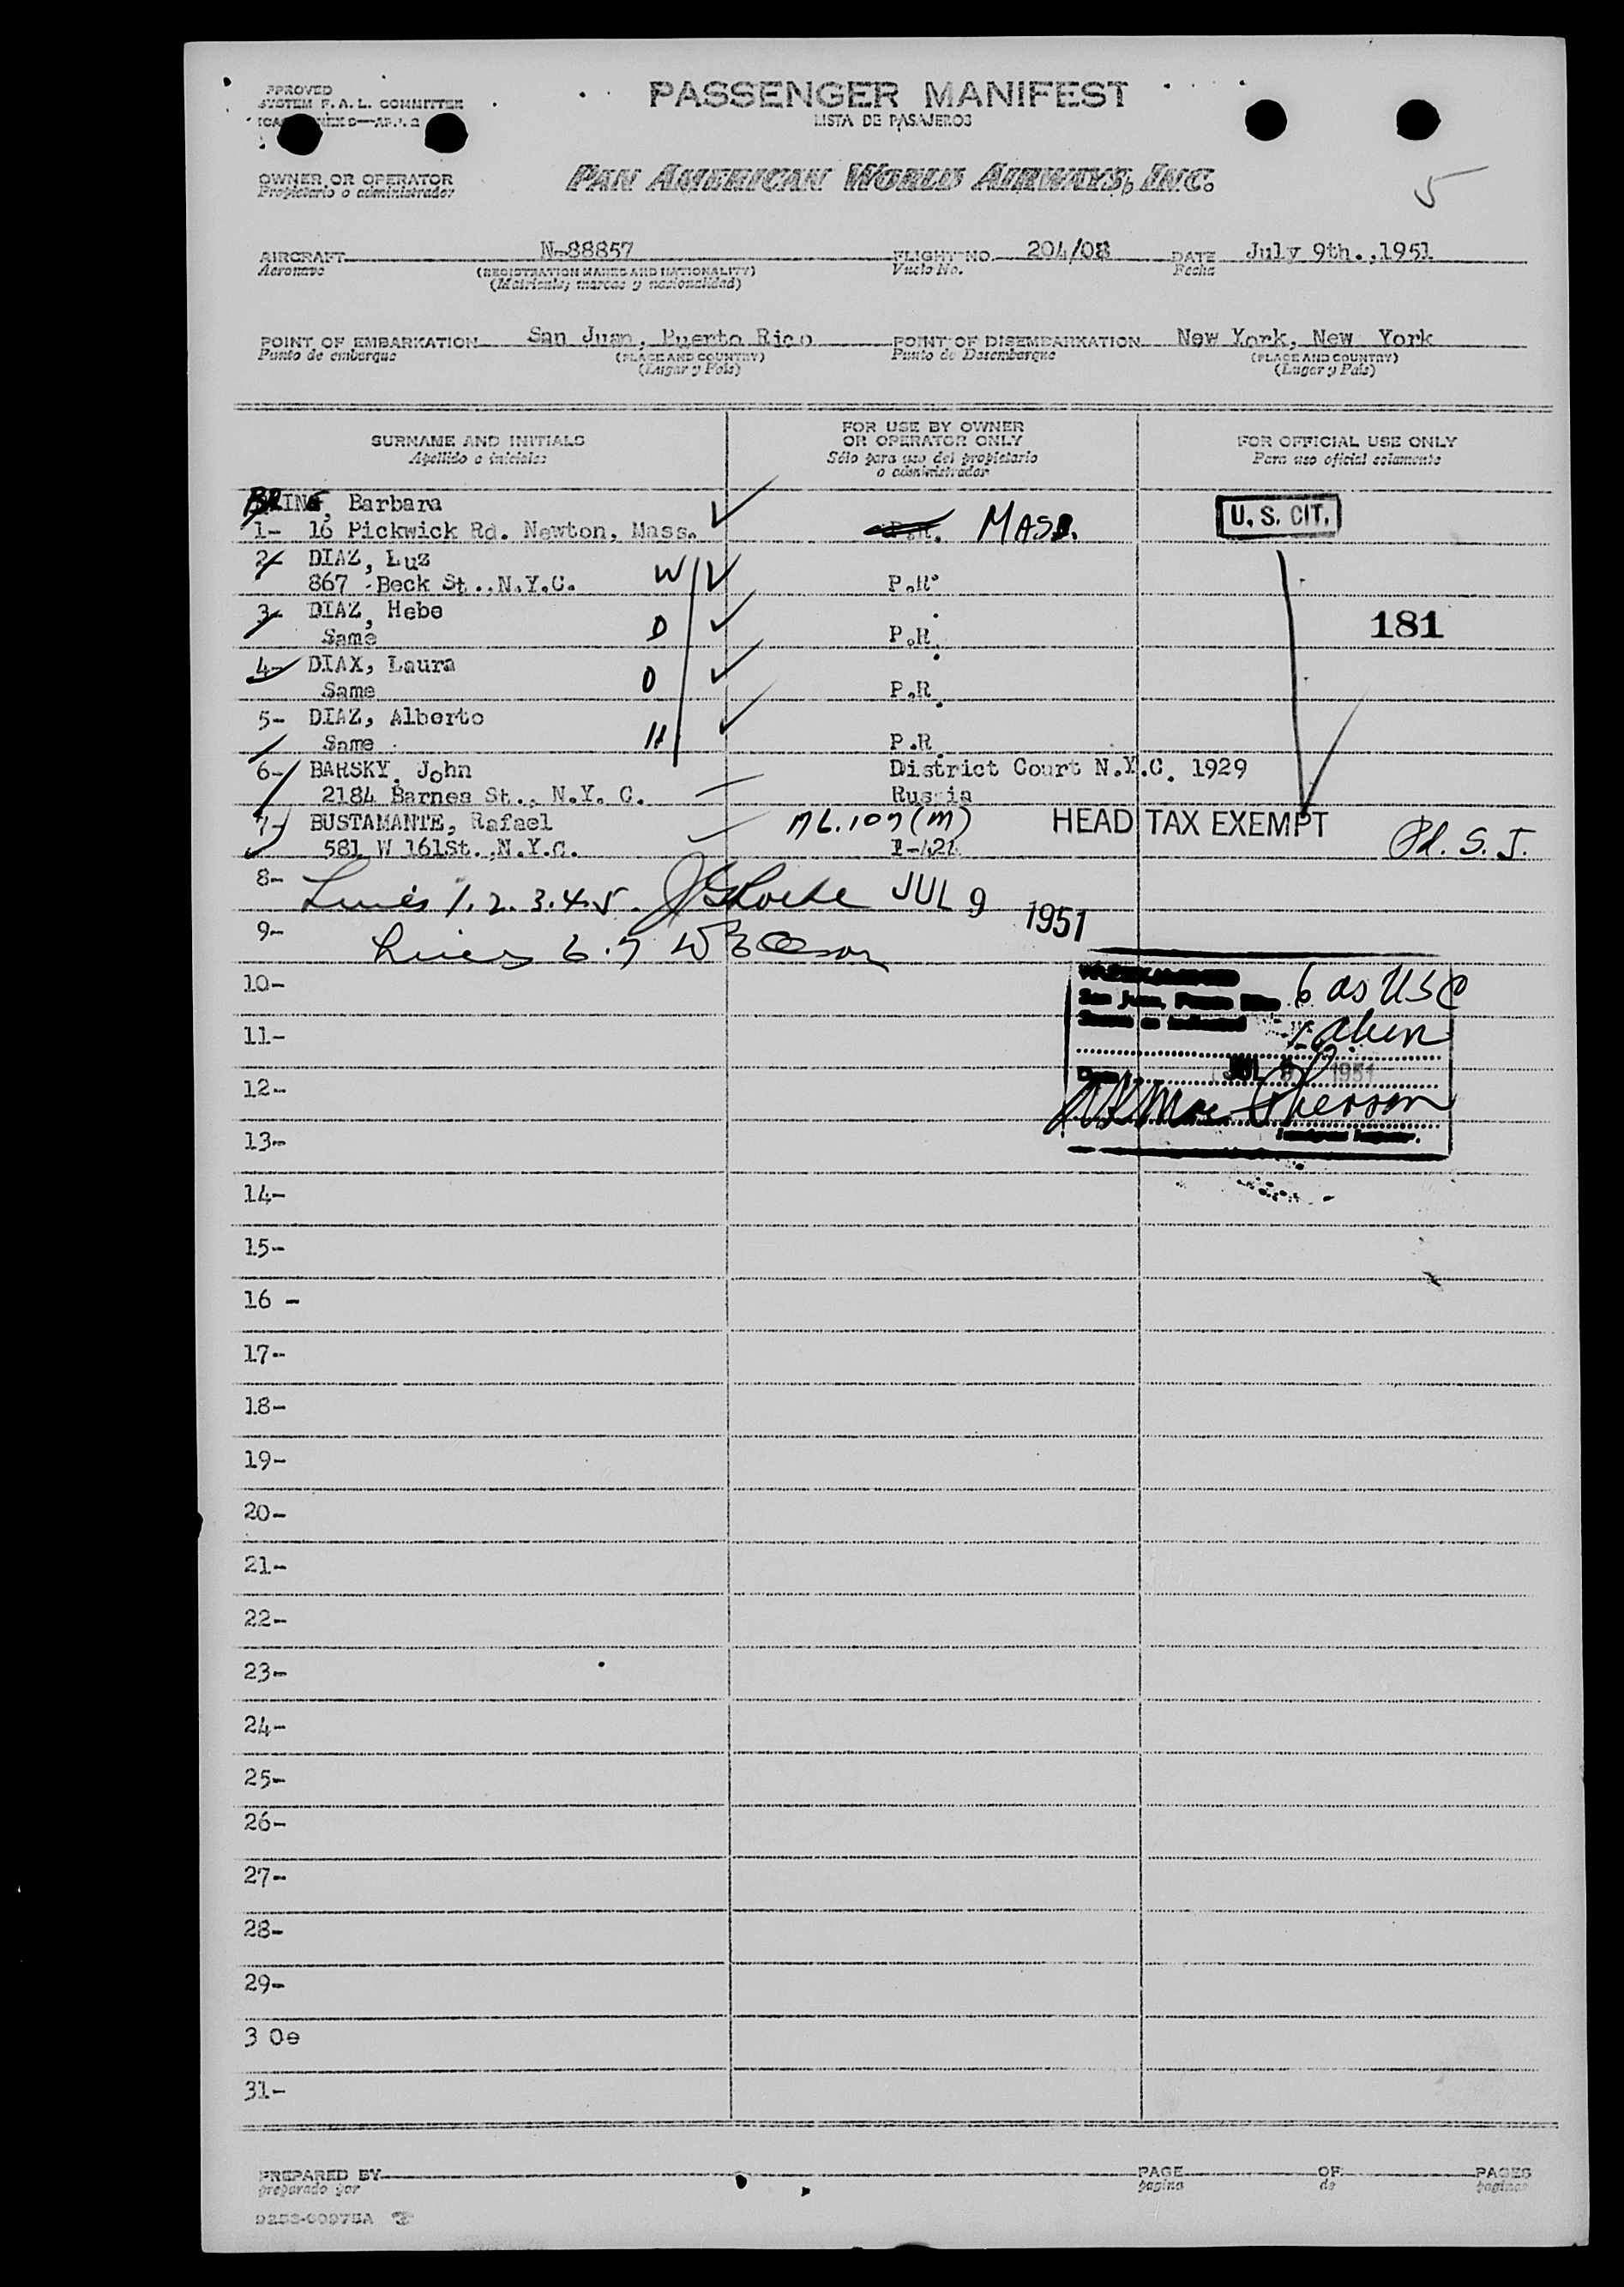 PPROVED
SYSTEM F. A. L. COMMITTEE
PASSENGER MANIFEST
LISTA DE PASAJEROS
OWNER OR OPERATOR
Propietario o administrador
PAN AMERICAN WORLD AIRWAYS, INC.
5
AIRCRAFT N-88857 FLIGHT NO. 204/08 DATE July 9th.,1951
Aeronave (REGISTRATION MARKS AND NATIONALITY) Vuelo No. Fecha
(Matrícula, marcas y nacionalidad)
POINT OF EMBARKATION San Juan, Puerto Rico POINT OF DISEMBARKATION New York, New York
Punto de embarque (PLACE AND COUNTRY) Punto de Desembarque (PLACE AND COUNTRY)
(Lugar y País) (Lugar y País)
SURNAME AND INITIALS
Apellido e iniciales
FOR USE BY OWNER
OR OPERATOR ONLY
Sólo para uso del propietario
o administrador
FOR OFFICIAL USE ONLY
Para uso oficial solamente
Barbara
1- 16 Pickwick Rd. Newton, Mass. MASS. U. S. CIT.
2- DIAZ, Luz
867 Beck St..N.Y.C. W P.R.
3- DIAZ, Hebe 181
Same D P.R.
4- DIAX, Laura
Same D P.R.
5- DIAZ, Alberto
Same H P.R.
6- BARSKY, John District Court N.Y.C. 1929
2184 Barnes St., N.Y. C. Russia
7- BUSTAMANTE, Rafael HEAD TAX EXEMPT
581 W 161St.,N.Y.C.
8- Lines 1. 2. 3. 4. 5. JUL 9 1951
9- Lines 6. 7
10- San Juan, Puerto Rico 6 as USC
11- 1 alien
12- Date JUL 9 1951
13- Immigrant Inspector.
14-
15-
16 -
17-
18-
19-
20-
21-
22-
23-
24-
25-
26-
27-
28-
29-
3 0e
31-
PREPARED BY PAGE OF PAGES
preparado por pagina de paginas